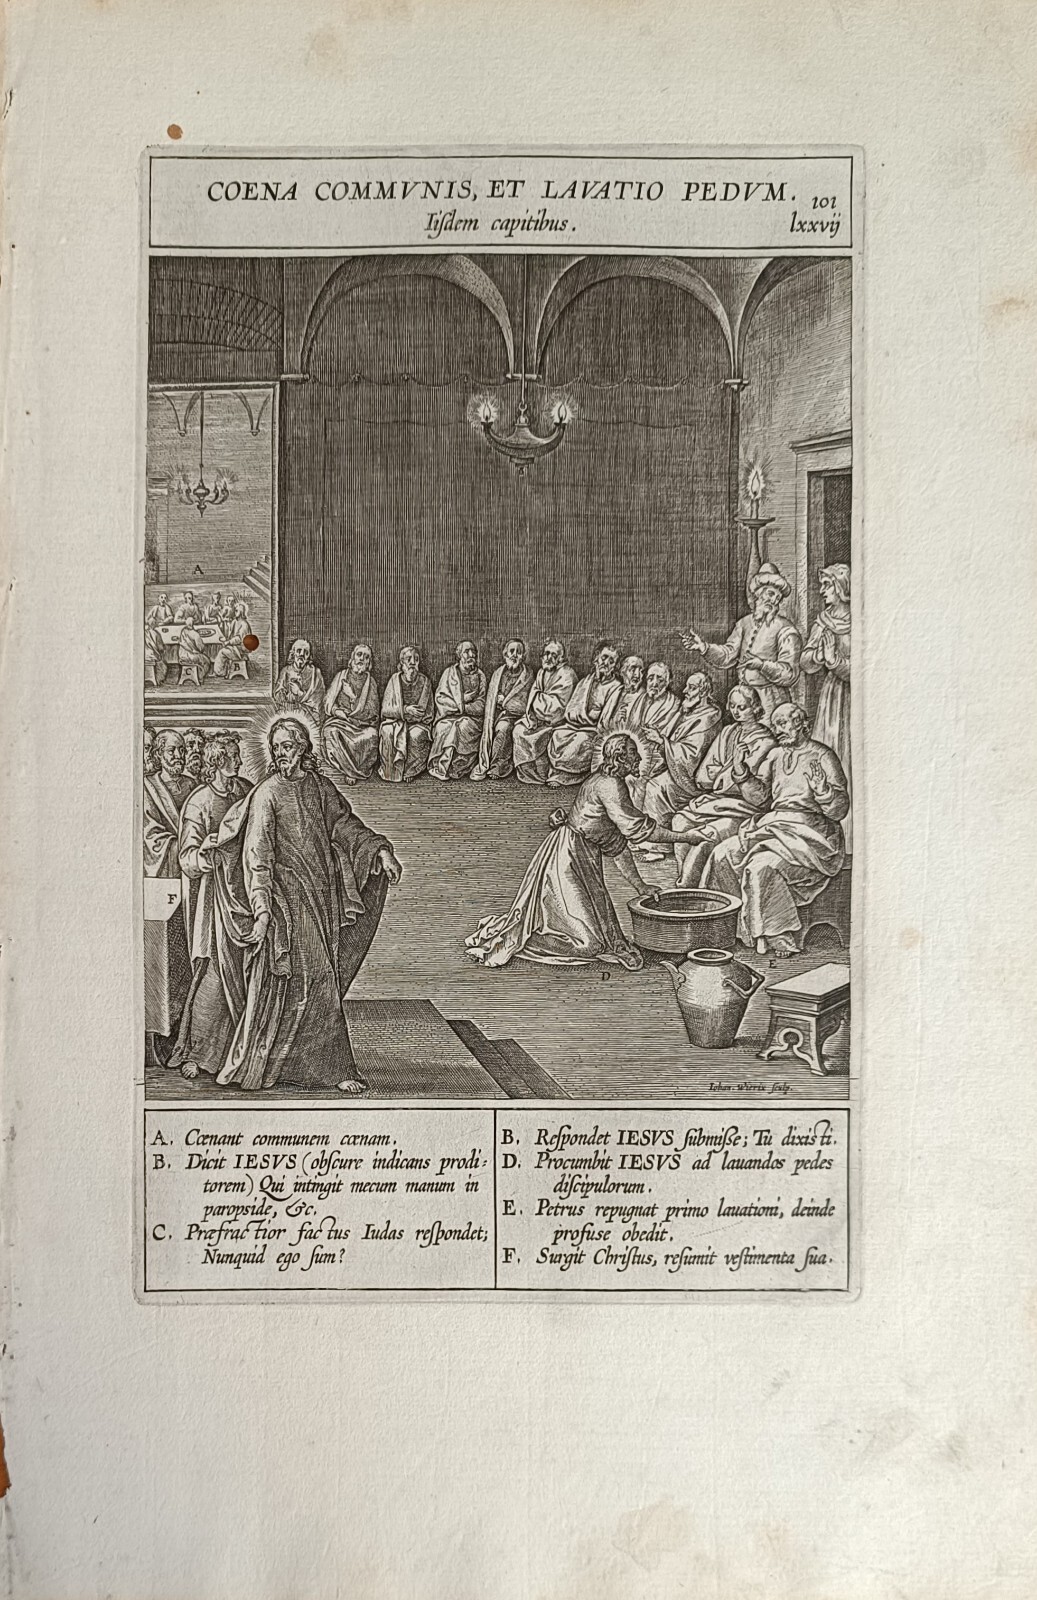 COENA COMMVNIS, ET LAVATIO PEDVM.
101
Iiſdem capitibus.
lxxvij
A
C
B
F
D
E
Iohan. Wierix ſculp.
A. Cœnant communem cœnam.
B. Dicit IESVS (obſcure indicans prodi-
torem) Qui intingit mecum manum in
paropside, &c.
C. Præfractior factus Iudas reſpondet;
Nunquid ego ſum?
B. Reſpondet IESVS ſubmiſſe; Tu dixisti.
D. Procumbit IESVS ad lauandos pedes
diſcipulorum.
E. Petrus repugnat primo lauationi, deinde
profuse obedit.
F. Surgit Chriſtus, reſumit veſtimenta ſua.